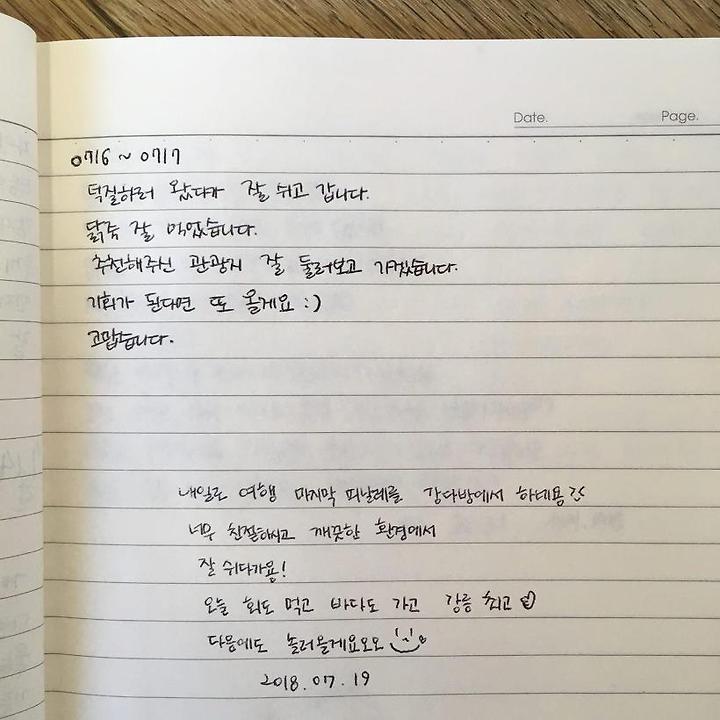 Date.
Page.
0716 ~ 0717
덕질하러 왔다가 잘 쉬고 갑니다.
닭죽 잘 먹었습니다.
추천해주신 관광지 잘 둘러보고 가겠습니다.
기회가 된다면 또 올게요 :)
고맙습니다.
내일로 여행 마지막 피날레를 강다방에서 하네용ㅎㅎ
너무 친절하시고 깨끗한 환경에서
잘 쉬다가용!
오늘 회도 먹고 바다도 가고 강릉 최고
다음에도 놀러올게요오오
2018.07.19